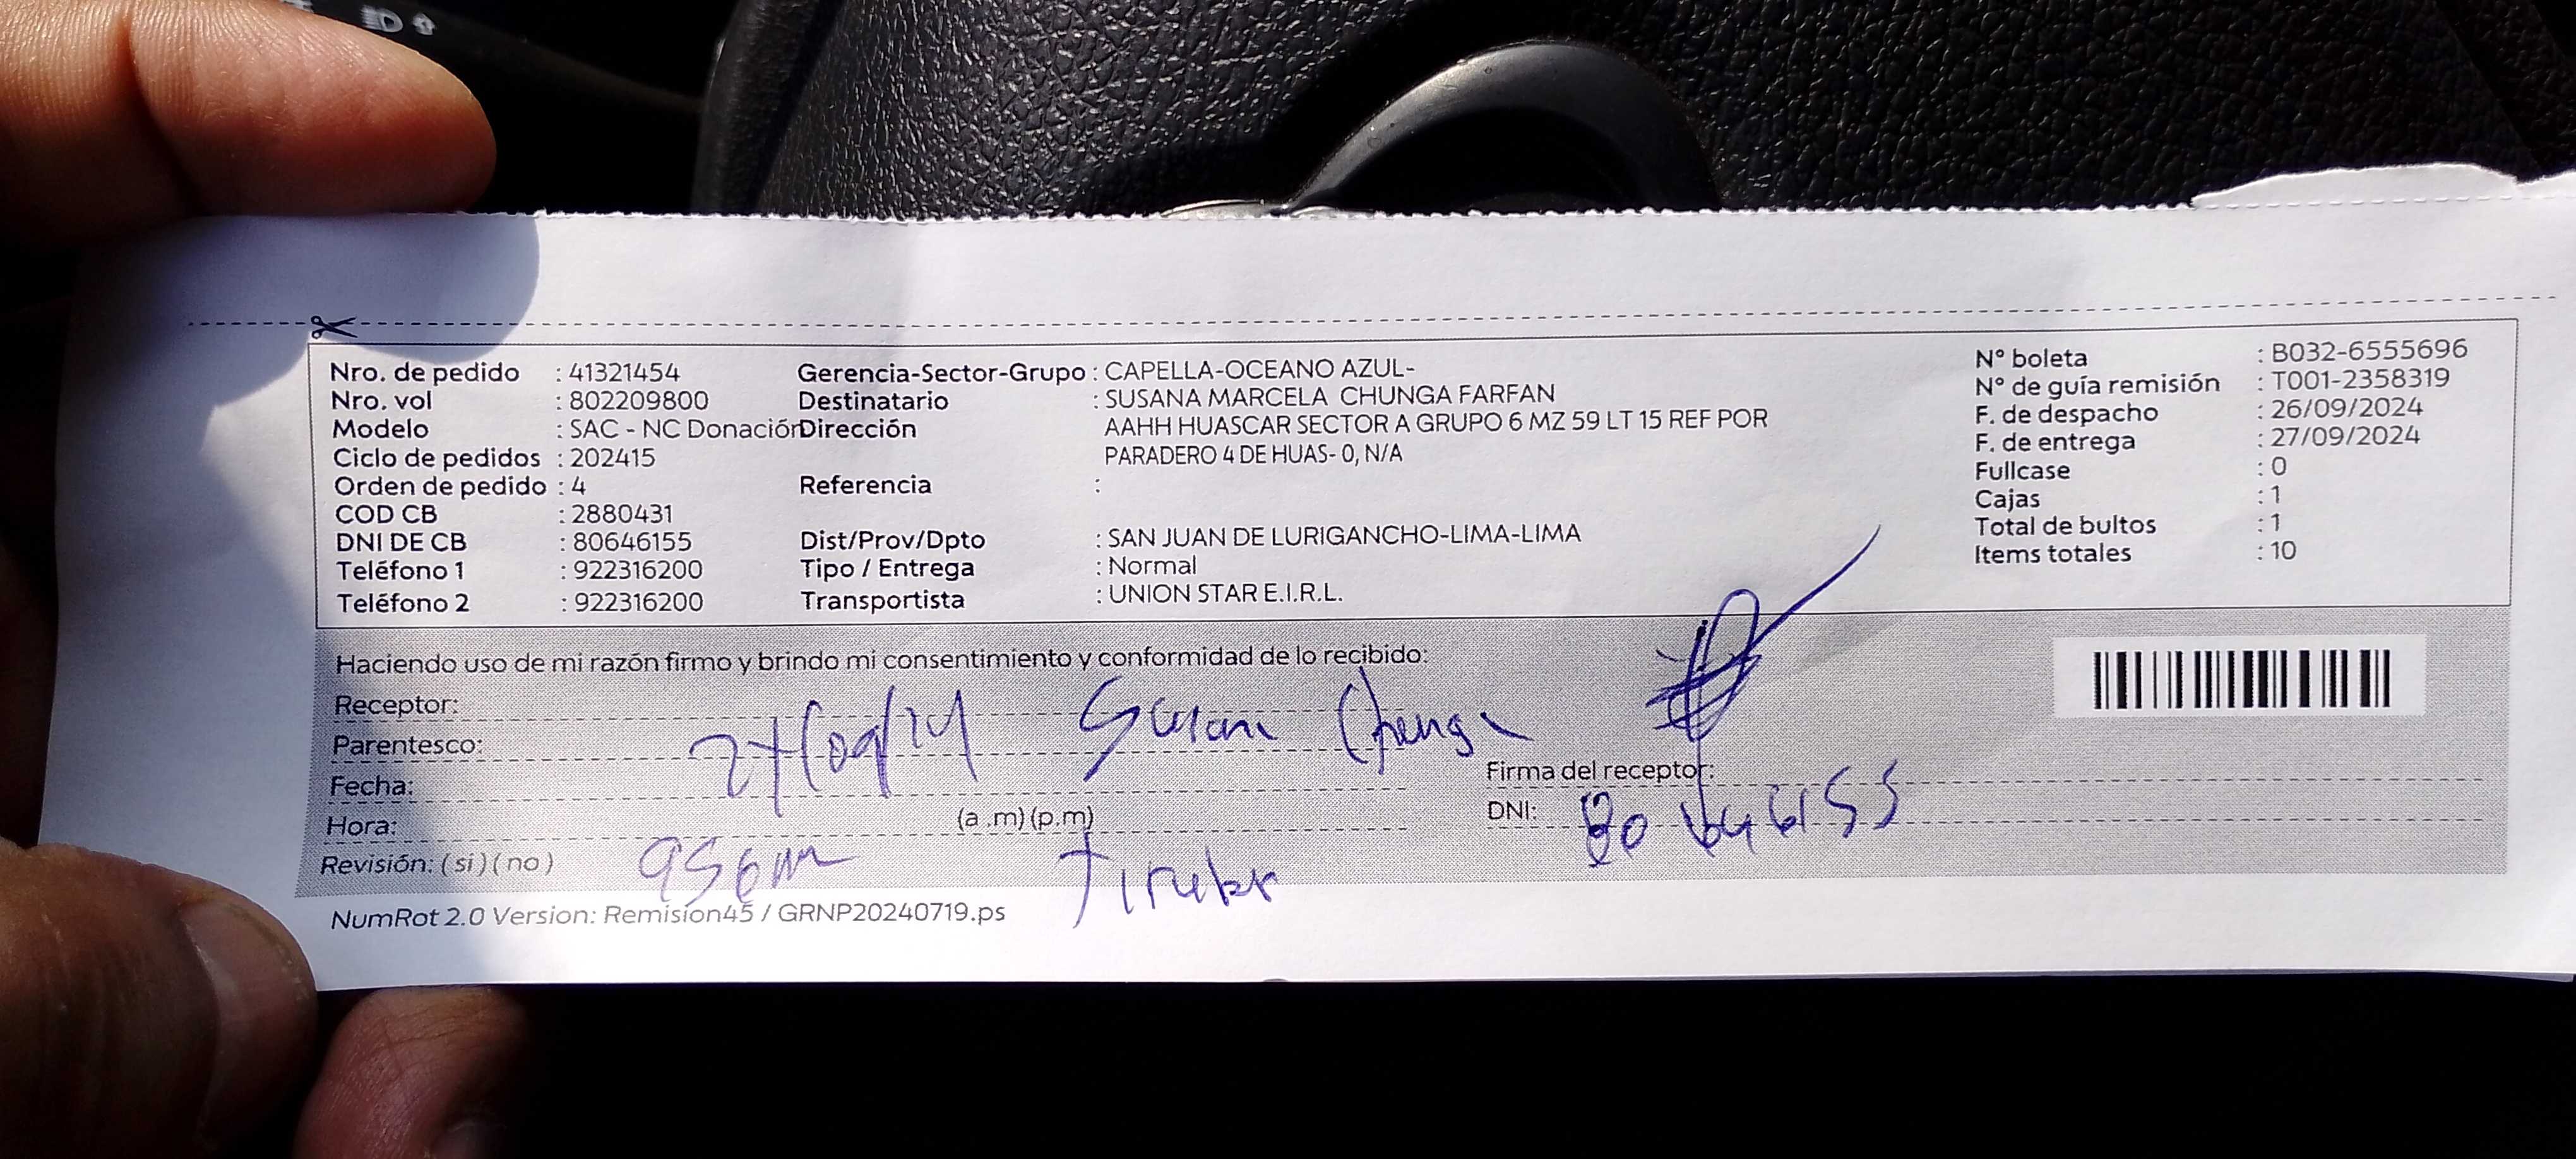 Nro. de pedido : 41321454 Gerencia-Sector-Grupo : CAPELLA-OCEANO AZUL- N° boleta : B032-6555696
Nro. vol : 802209800 Destinatario : SUSANA MARCELA CHUNGA FARFAN N° de guía remisión : T001-2358319
Modelo : SAC - NC Donación Dirección AAHH HUASCAR SECTOR A GRUPO 6 MZ 59 LT 15 REF POR F. de despacho : 26/09/2024
Ciclo de pedidos : 202415 PARADERO 4 DE HUAS- 0, N/A F. de entrega : 27/09/2024
Orden de pedido : 4 Referencia : Fullcase : 0
COD CB : 2880431 Cajas : 1
DNI DE CB : 80646155 Dist/Prov/Dpto : SAN JUAN DE LURIGANCHO-LIMA-LIMA Total de bultos : 1
Teléfono 1 : 922316200 Tipo / Entrega : Normal Items totales : 10
Teléfono 2 : 922316200 Transportista : UNION STAR E.I.R.L.
Haciendo uso de mi razón firmo y brindo mi consentimiento y conformidad de lo recibido:
Receptor:
Parentesco: 27/09/24
Fecha: Firma del receptor:
Hora: (a .m) (p.m) DNI: 80646155
Revisión: ( si ) ( no ) 956m
NumRot 2.0 Version: Remision45 / GRNP20240719.ps